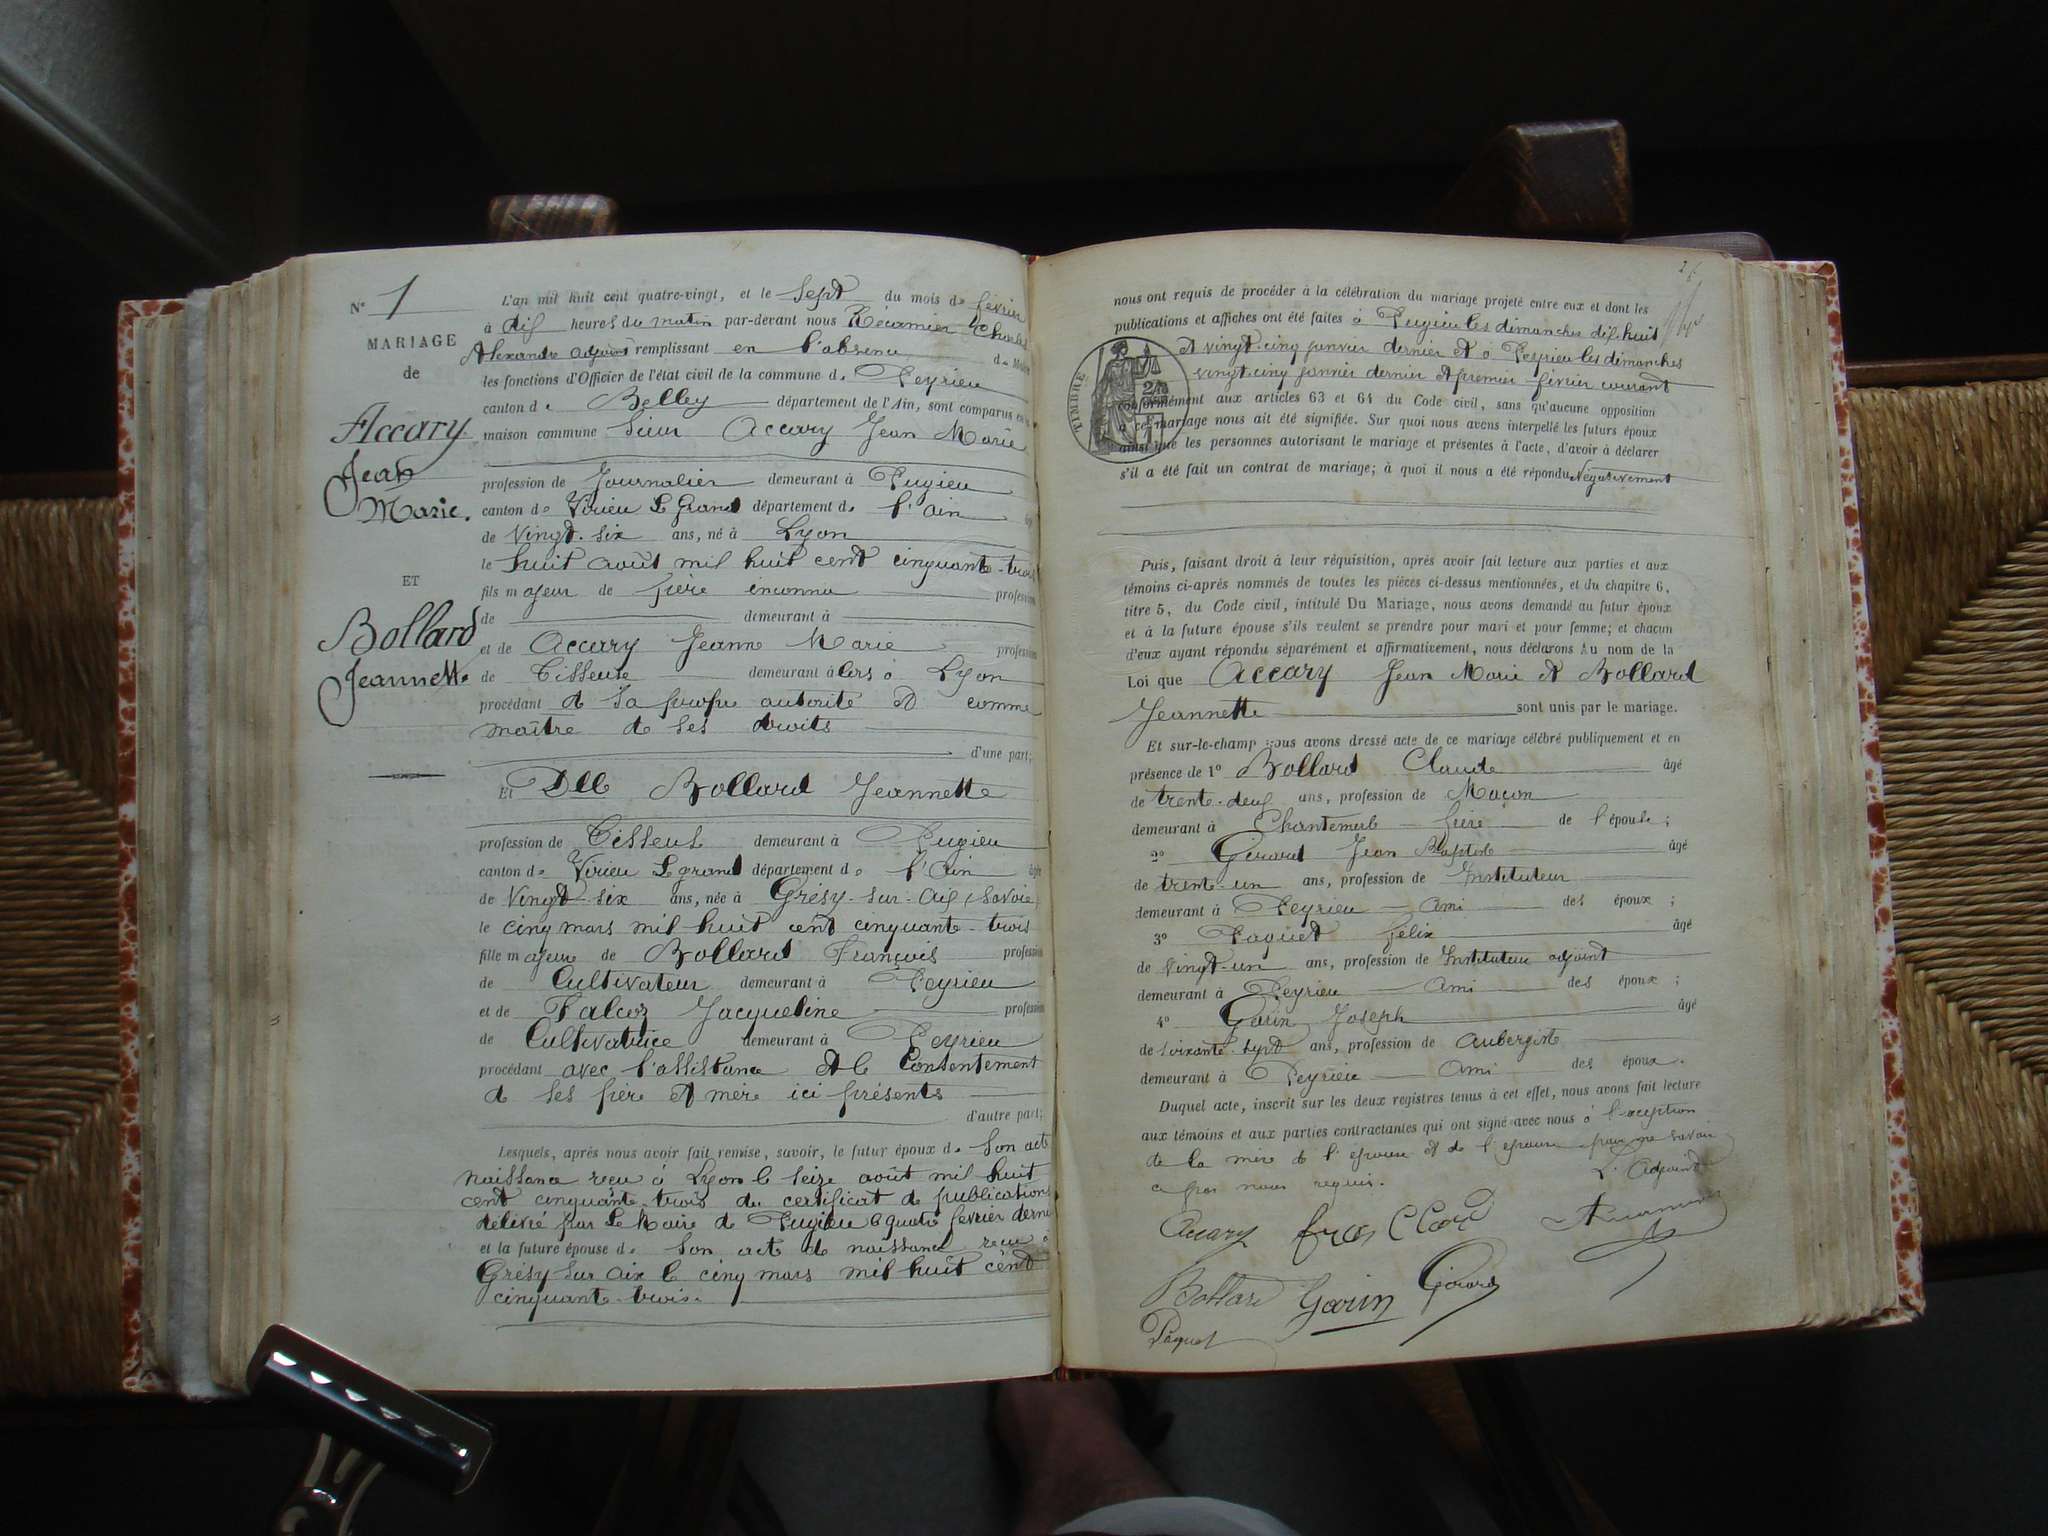 N° 1
MARIAGE
de
Accary
Jean
Marie.
ET
Bollard
Jeannette
L'an mil huit cent quatre-vingt, et le Sept du mois de février
à dix heures du matin par-devant nous Récamier Charles
Alexandre adjoint remplissant en l'absence
les fonctions d'Officier de l'état civil de la commune de Peyrieu
canton de Belley département de l'Ain, sont comparus en la
maison commune Sieur Accary Jean Marie
profession de Journalier demeurant à Pugieu
canton de Virieu Le Grand département de l'ain
de Vingt-six ans, né à Lyon
le huit août mil huit cent cinquante-trois
fils majeur de père inconnu profession
de demeurant à
et de Accary Jeanne Marie profession
de Tisseuse demeurant à lors à Lyon
procédant de sa propre autorité et comme
maître de ses droits
d'une part;
Et Dlle Bollard Jeannette
profession de Tisseuse demeurant à Pugieu
canton de Virieu Le grand département de l'ain âgée
de Vingt-six ans, née à Grésy-sur-Aix (Savoie)
le cinq mars mil huit cent cinquante-trois
fille majeure de Bollard François profession
de Cultivateur demeurant à Peyrieu
et de Falcoz Jacqueline profession
de Cultivatrice demeurant à Peyrieu
procédant avec l'assistance et le Consentement
de ses père et mère ici présents
d'autre part;
Lesquels, après nous avoir fait remise, savoir, le futur époux de Son acte
naissance reçu à Lyon le seize août mil huit
cent cinquante-trois du certificat de publications
délivré par Le Maire de Pugieu le quatre février dernier
et la future épouse de Son acte de naissance reçu à
Grésy sur Aix le cinq mars mil huit cent
cinquante-trois.
26
nous ont requis de procéder à la célébration du mariage projeté entre eux et dont les
publications et affiches ont été faites à Pugieu les dimanches dix-huit
et vingt-cinq janvier dernier et à Peyrieu les dimanches
vingt-cinq janvier dernier et premier février courant
TIMBRE
conformément aux articles 63 et 64 du Code civil, sans qu'aucune opposition
à ce mariage nous ait été signifiée. Sur quoi nous avons interpellé les futurs époux
ainsi que les personnes autorisant le mariage et présentes à l'acte, d'avoir à déclarer
s'il a été fait un contrat de mariage; à quoi il nous a été répondu Négativement
Puis, faisant droit à leur réquisition, après avoir fait lecture aux parties et aux
témoins ci-après nommés de toutes les pièces ci-dessus mentionnées, et du chapitre 6,
titre 5, du Code civil, intitulé Du Mariage, nous avons demandé au futur époux
et à la future épouse s'ils veulent se prendre pour mari et pour femme; et chacun
d'eux ayant répondu séparément et affirmativement, nous déclarons Au nom de la
Loi que Accary Jean Marie et Bollard
Jeannette sont unis par le mariage.
Et sur-le-champ nous avons dressé acte de ce mariage célébré publiquement et en
présence de 1° Bollard Claude âgé
de trente-deux ans, profession de Maçon
demeurant à Chantemerle frère de l'épouse;
2° Girard Jean Baptiste âgé
de trente-un ans, profession de Instituteur
demeurant à Peyrieu Ami des époux;
3° Paquet Félix âgé
de vingt-un ans, profession de Instituteur adjoint
demeurant à Peyrieu Ami des époux;
4° Gorin Joseph âgé
de soixante-sept ans, profession de aubergiste
demeurant à Peyrieu Ami des époux.
Duquel acte, inscrit sur les deux registres tenus à cet effet, nous avons fait lecture
aux témoins et aux parties contractantes qui ont signé avec nous à l'exception
de la mère de l'épouse et de l'épouse pour ne savoir
ce par nous requis.
L'adjoint
Accary
Bollard Gorin Girard
Paquet